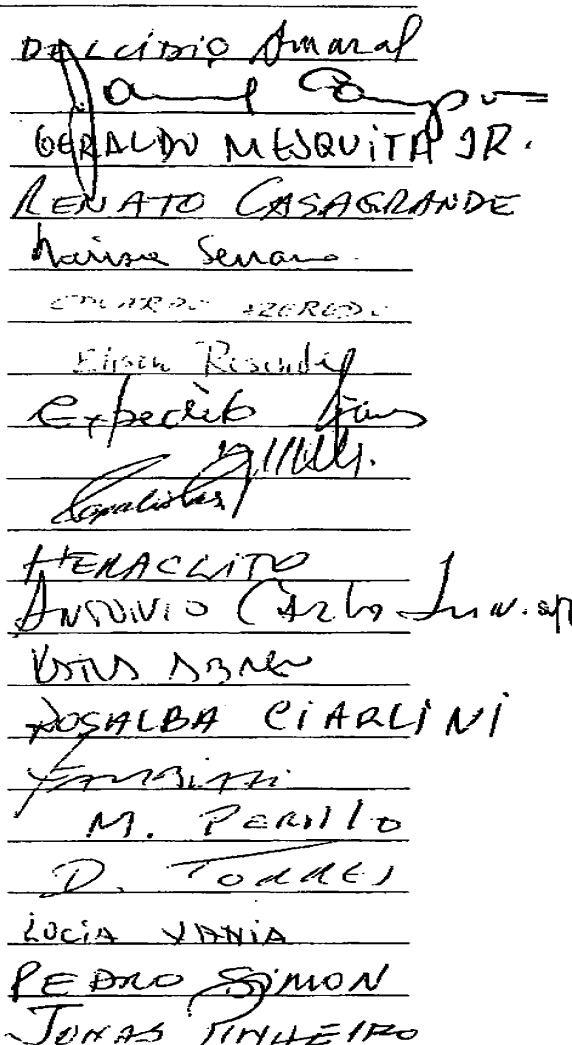 DELCÍDIO Amaral
GERALDO MESQUITA JR.
RENATO CASAGRANDE
Marisa Serrano
EDUARDO AZEREDO
Eliseu Resende
Expedito Júnior
Papaléo
HERACLITO
ANTONIO Carlos Jun.
KÁTIA ABREU
ROSALBA CIARLINI
M. PERILLO
D. TORRES
LÚCIA VANIA
PEDRO SIMON
JONAS PINHEIRO